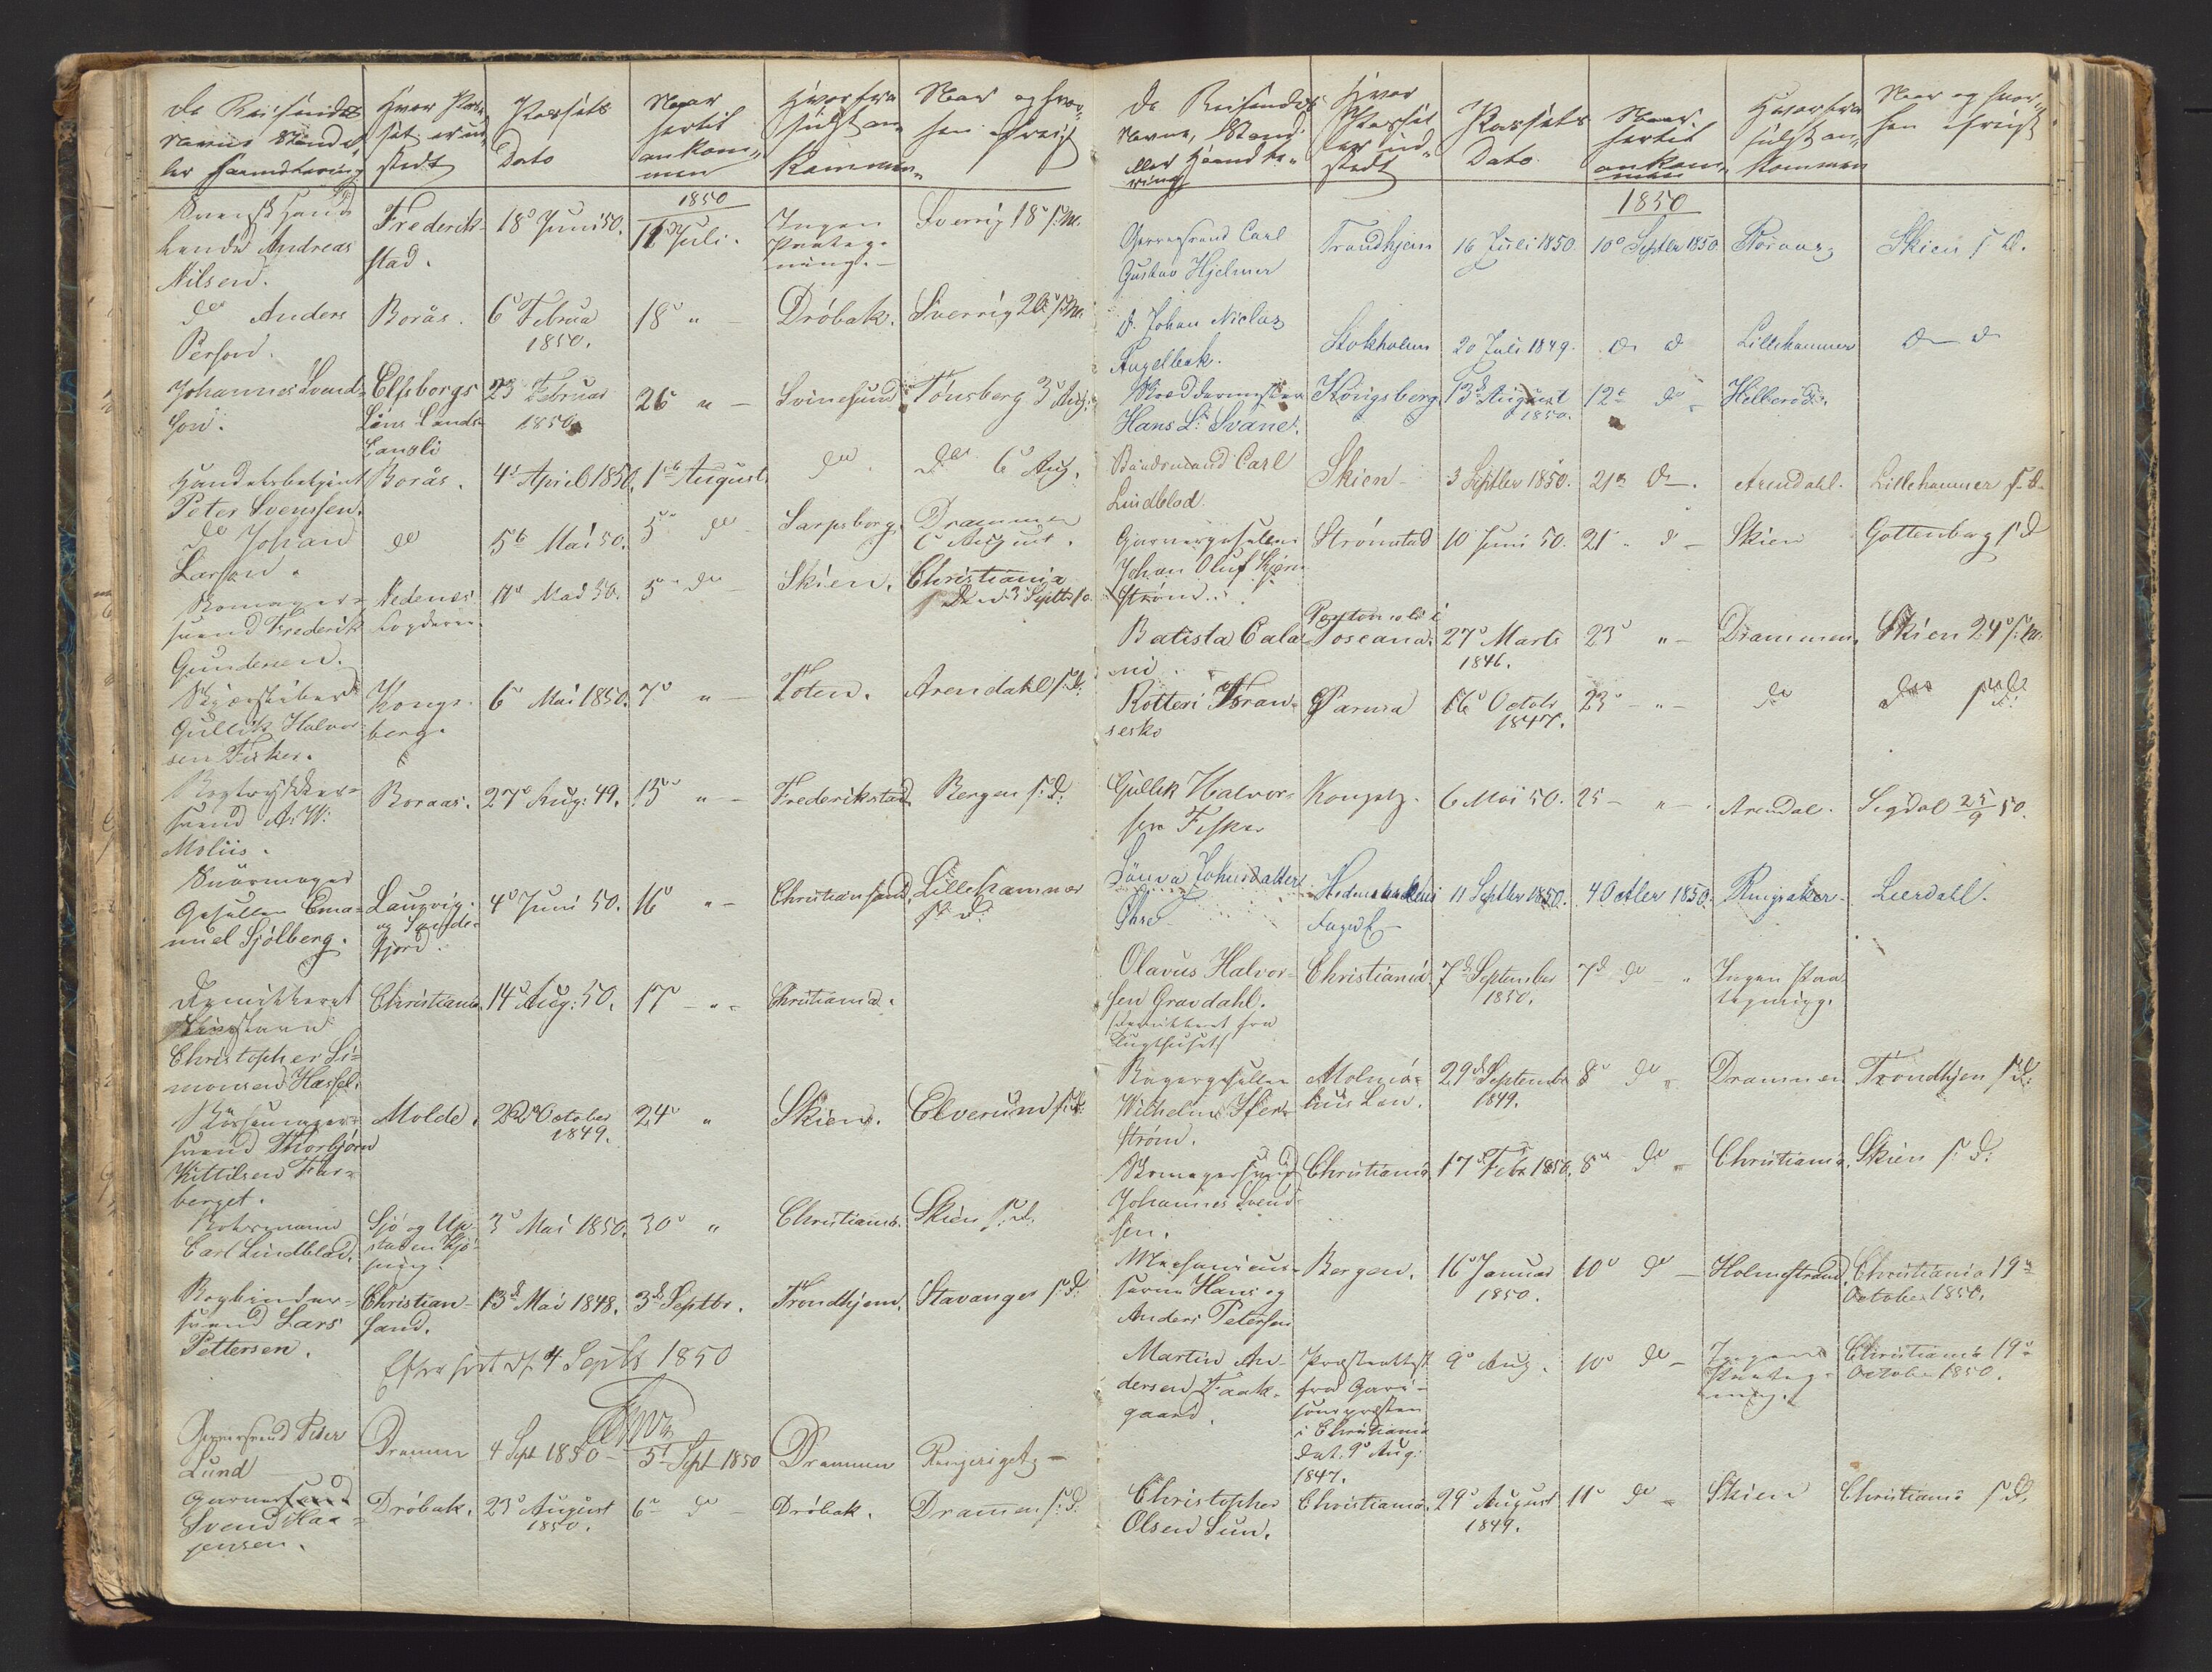 De Reisendes
Navne Stand el-
ler Haandtering
Hvor Pas-
set er ud-
stedt
Passets
Dato
Naar
hertil
ankom-
men
Hvorfra
sidst an-
kommen
Naar og hvor-
hen afreist
1850
Svensk Hand-
lende Andreas
Nilsen.
Frederik-
stad.
18de Juni 50.
11 Juli.
Ingen
Paateg-
ning.
Sverrig 18de s. M.
do Anders
Person.
Borås.
6 Februa
1850.
18de " -
Dröbak.
Sverrig 20 s. M.
Johannes Svend-
son.
Elfsborgs
Läns Lands-
Cancli
23 Februar
1850.
26 " -
Svinesund
Tönsberg 3 Aug.
Handelsbetjent
Peter Svenssen.
Borås.
4de April 1850.
1ste August.
do.
do 6 Aug.
do Johan
Larson.
do
5te Mai 50.
5 do -
Sarpsborg.
Drammen
6 August.
Romager-
svend Frederik
Gundersen.
Nedenes
Fogderi
11 Mai 50.
5 do
Skien.
Christiania
3 Septbr
Skjærsliber
Gullik Halvor-
sen Fisker.
Kongs-
berg.
6 Mai 1850.
7de " -
Toten.
Arendahl s. D.
Bogtrykker-
svend A. W.
Moliis.
Boraas.
27de Aug: 49.
15 " -
Frederikstad
Bergen s. D.
Snörmager
Gesellen Ema-
nuel Sjölberg.
Laurvig.
og Sande-
fjord.
4de Juni 50.
16 " -
Christiansand
Lillehammer
s. D.
Demitteret
Christopher Si-
monsen Hassel.
Christiania.
14 Aug: 50.
17 " -
Christiania.
Börsemager-
svend Thorbjörn
Kittilsen Far-
berget.
Molde.
22 October
1849.
24 "
Skien.
Elverum s. D.
Carl Lindblad.
Sjö og Up-
staden Kjö-
ping.
3de Mai 1850.
30 "
Christiania.
Skien s. D.
Bogbinder-
svend Lars
Pettersen.
Christian-
sand.
13de Mai 1848.
3de Septbr.
Trondhjem.
Stavanger s. D.
Efterseet d. 4 Septb 1850
Garversvend Peder
Lund
Drammen
4 Sept 1850 -
5 Sept 1850
Drammen
Ringeriget -
Garversvend
Svend Haa-
gensen.
Dröbak.
23de August
1850.
6 do -
Dröbak.
Drammen s. D.
De Reisendes
Navne, Stand
eller Haandte-
ring
Hvor
Passet
er ud-
stedt
Passets
Dato
Naar
hertil
ankom-
men
Hvorfra
sidst an-
kommen
Naar og hvor-
hen afreist
1850
Garversvend Carl
Gustav Hjelmer
Trondhjem
16 Juli 1850.
10de Septbr 1850
Horaas
Skien s D.
D. Johan Niclas
Angelbek.
Stokholm
20 Juli 1849.
do d
Lillehammer
do d
Skræddermester
Hans L. Svane.
Kongsberg.
13de August
1850.
12te do -
Hilleröd.
Baadsmand Carl
Lindblad
Skien -
3 Septbr 1850.
21de do.
Arendahl.
Lillehammer s. D.
Garvergesellen
Johan Oluf Hjern-
ström.
Strömstad
10 Juni 50.
21 " d -
Skien
Gottenborg s D
Batista Cala-
ni
Pontremoli i
Toscana.
27de Marts
1846.
23 " -
Drammen.
Skien 24de s. M.
Rotteri Fran-
sesko
Parma
16 Octobr
1847.
23 - " -
do
do s. D.
Gullik Halvor-
sen Fisker
Kongsbg.
6 Mai 50.
25 - " -
Arendal.
Sigdal 25/9 50.
Johnsdatter
Hedemarkens
Fogd.
11 Septbr 1850.
4 Octbr 1850.
Ringsaker
Leerdahl.
Olavus Halvor-
sen Gravdahl.
demitteret fra
Tugthuset
Christiania
7de September
1850.
7de do - "
Ingen Paa-
tegning.
Bagergesellen
Wilhelm Stern-
ström.
Malmö-
hus Len.
29de Septembr
1849.
8 do
Drammen
Trondhjem s. D.
Romagersvend
Johannes Svend-
sen.
Christiania
17de Febr 1850.
8 do
Christiania
Skien s. D.
Mechanicus-
serne Hans og
Anders Petersen
Bergen.
16 Januar
1850.
10 do -
Holmestrand.
Christiania 19de
October 1850.
Martin An-
dersen Faak-
gaard.
Præsteattest
fra Garni-
sonspresten
i Christiania
dat. 9 Aug.
1847.
9 Aug.
10 do -
Ingen
Paateg-
ning.
Christiania 19de
October 1850.
Christopher
Olsen Sun.
Christiania.
29de August
1849.
11 do -
Skien
Christiania s. D.